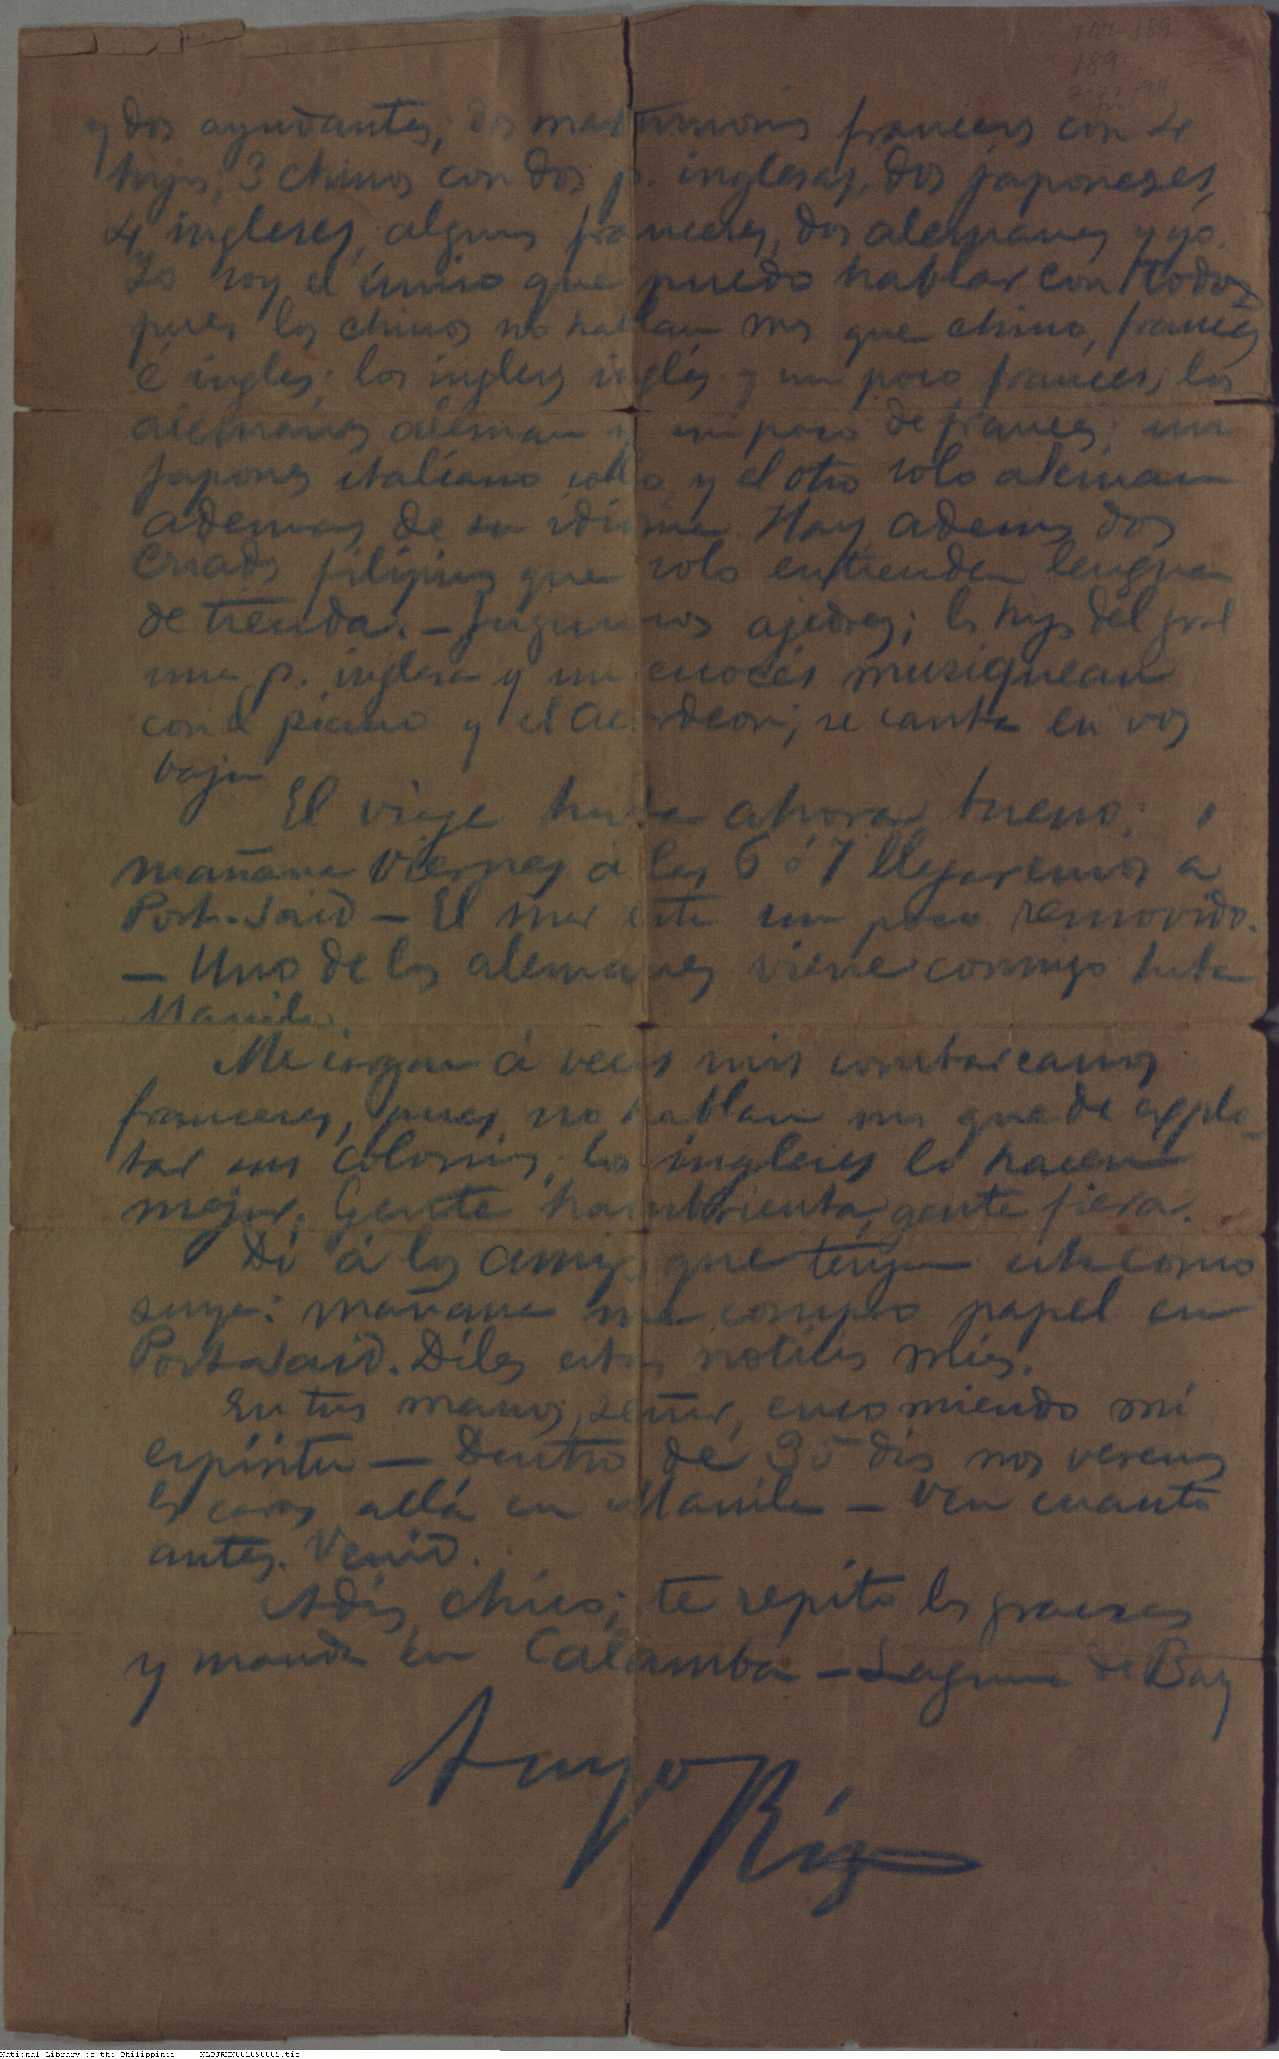 189
y dos ayudantes, dos matrimonios franceses con 4
hijos, 3 chinos con dos p. inglesas, dos japoneses,
4 ingleses, algunos franceses, dos alemanes y yo.
Yo soy el único que puedo hablar con todos
pues los chinos no hablan mas que chino, francés
é inglés; los ingleses inglés y un poco frances; los
alemanes aleman y un poco de frances; un
japones italiano solo, y el otro solo aleman
ademas de su idioma. Hay ademas dos
criados filipinos que solo entienden lengua
de tienda. — Jugamos ajedres; los hijos del gral
una p. inglesa y un escocés musiquean
con el piano y el acordeon; se canta en vos
baja
El viaje hasta ahora bueno;
mañana Viernes á las 6 ó 7 llegaremos a
Port-Said — El mar esta un poco removido.
— Uno de los alemanes viene conmigo hasta
Manila.
Me cargan á veces mis combarcanos
franceses, pues no hablan mas que de explo-
tar sus colonias; los ingleses lo hacen
mejor. Gente hambrienta, gente fiera.
Dí á los amigos que tengan esta como
suya: mañana me compro papel en
Port-Said. Díles estas noticias mias.
En tus manos, señor, encomiendo mi
espíritu — Dentro de 35 dias nos veremos
las caras allá en Manila — Ven cuanto
antes. Venid.
Adis chico; te repito las gracias
y manda en Calamba — Laguna de Bay
Tuyo
Rizal
National Library of the Philippines